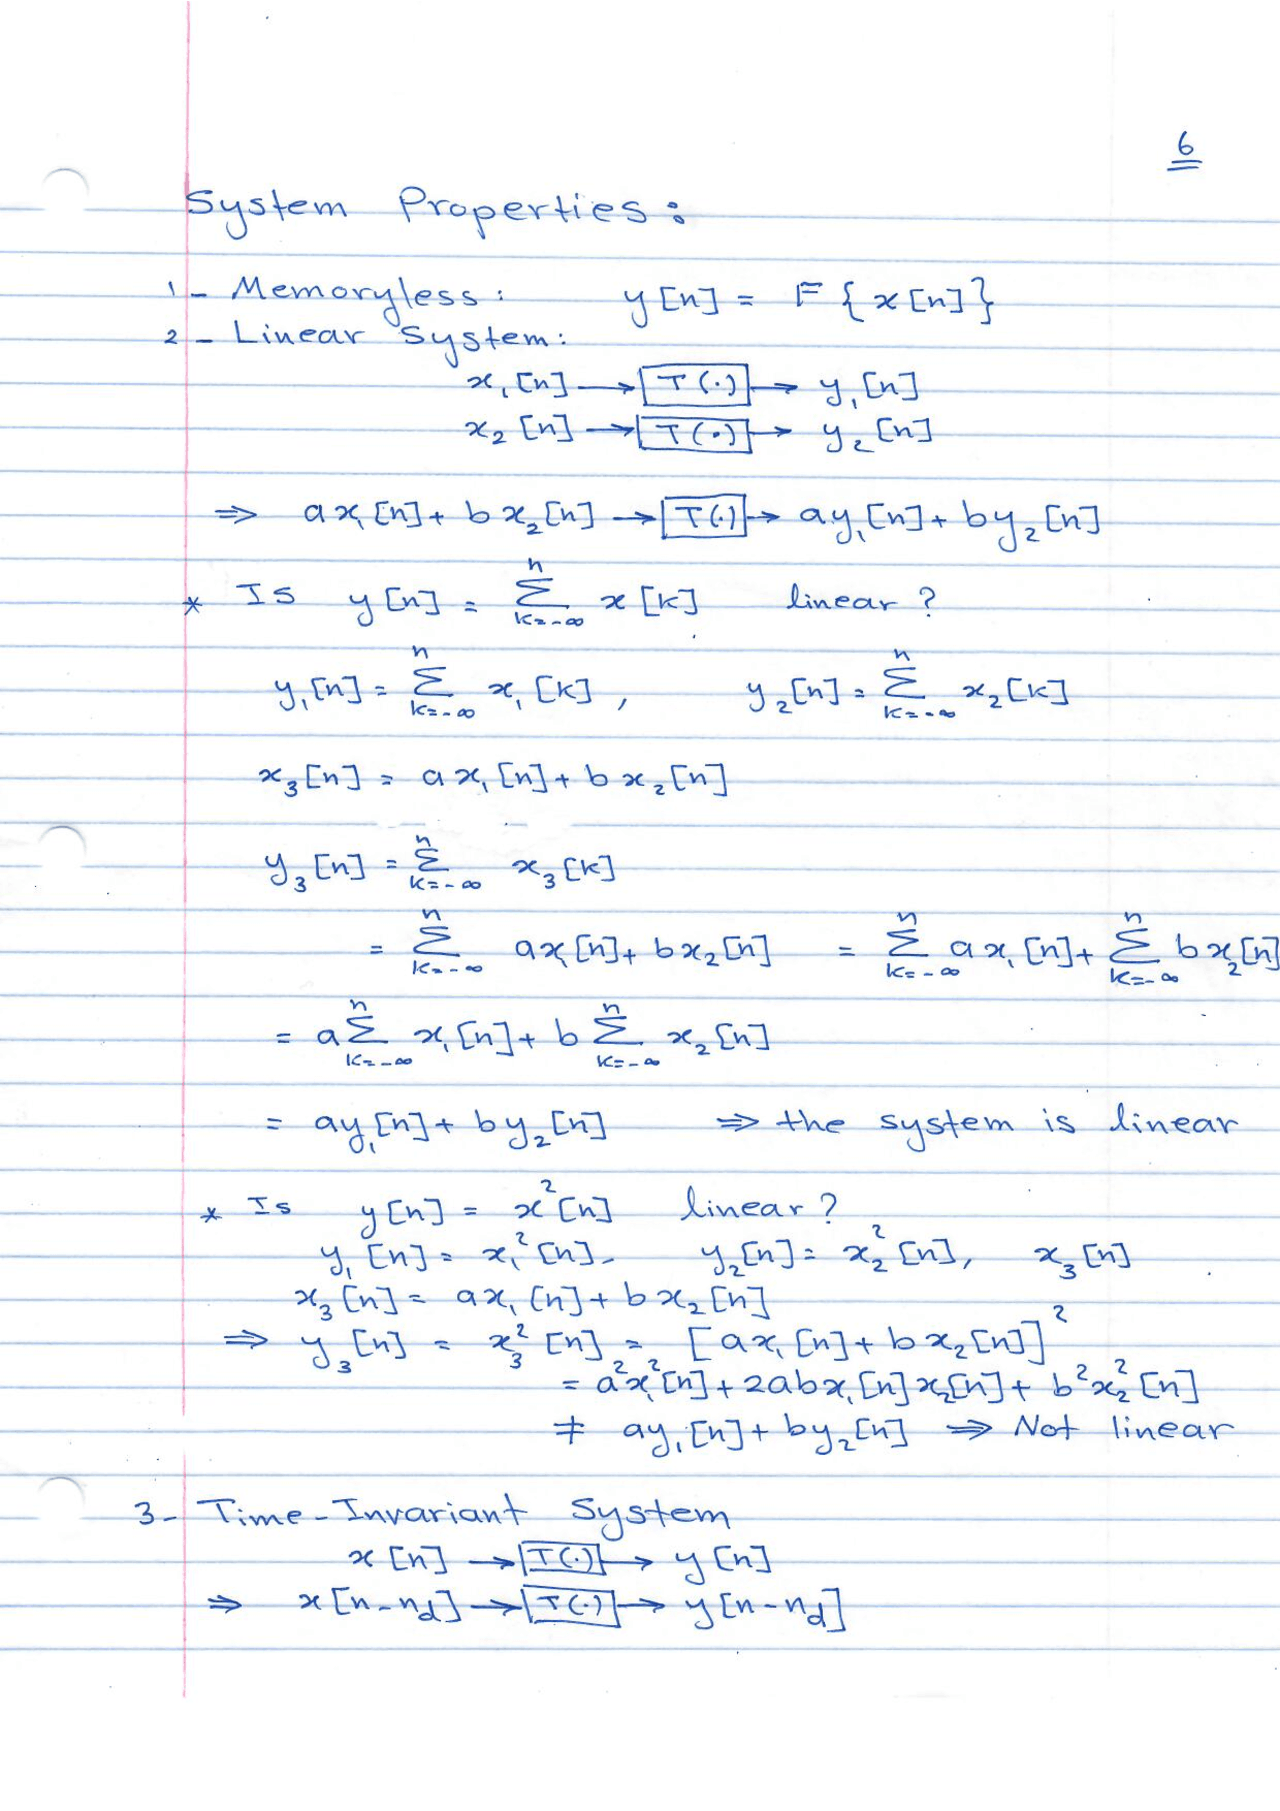 6
System Properties:
1 - Memoryless: y[n] = F{x[n]}
2 - Linear System:
x₁[n] → T(·) → y₁[n]
x₂[n] → T(·) → y₂[n]
⇒ ax₁[n] + bx₂[n] → T(·) → ay₁[n] + by₂[n]
* Is y[n] = Σ_{k=-∞}^{n} x[k] linear?
y₁[n] = Σ_{k=-∞}^{n} x₁[k], y₂[n] = Σ_{k=-∞}^{n} x₂[k]
x₃[n] = ax₁[n] + bx₂[n]
y₃[n] = Σ_{k=-∞}^{n} x₃[k]
= Σ_{k=-∞}^{n} ax₁[n] + bx₂[n] = Σ_{k=-∞}^{n} ax₁[n] + Σ_{k=-∞}^{n} bx₂[n]
= a Σ_{k=-∞}^{n} x₁[n] + b Σ_{k=-∞}^{n} x₂[n]
= ay₁[n] + by₂[n] ⇒ the system is linear
* Is y[n] = x²[n] linear?
y₁[n] = x₁²[n], y₂[n] = x₂²[n], x₃[n]
x₃[n] = ax₁[n] + bx₂[n]
⇒ y₃[n] = x₃²[n] = [ax₁[n] + bx₂[n]]²
= a²x₁²[n] + 2abx₁[n]x₂[n] + b²x₂²[n]
≠ ay₁[n] + by₂[n] ⇒ Not linear
3- Time-Invariant System
x[n] → T(·) → y[n]
⇒ x[n-n_d] → T(·) → y[n-n_d]